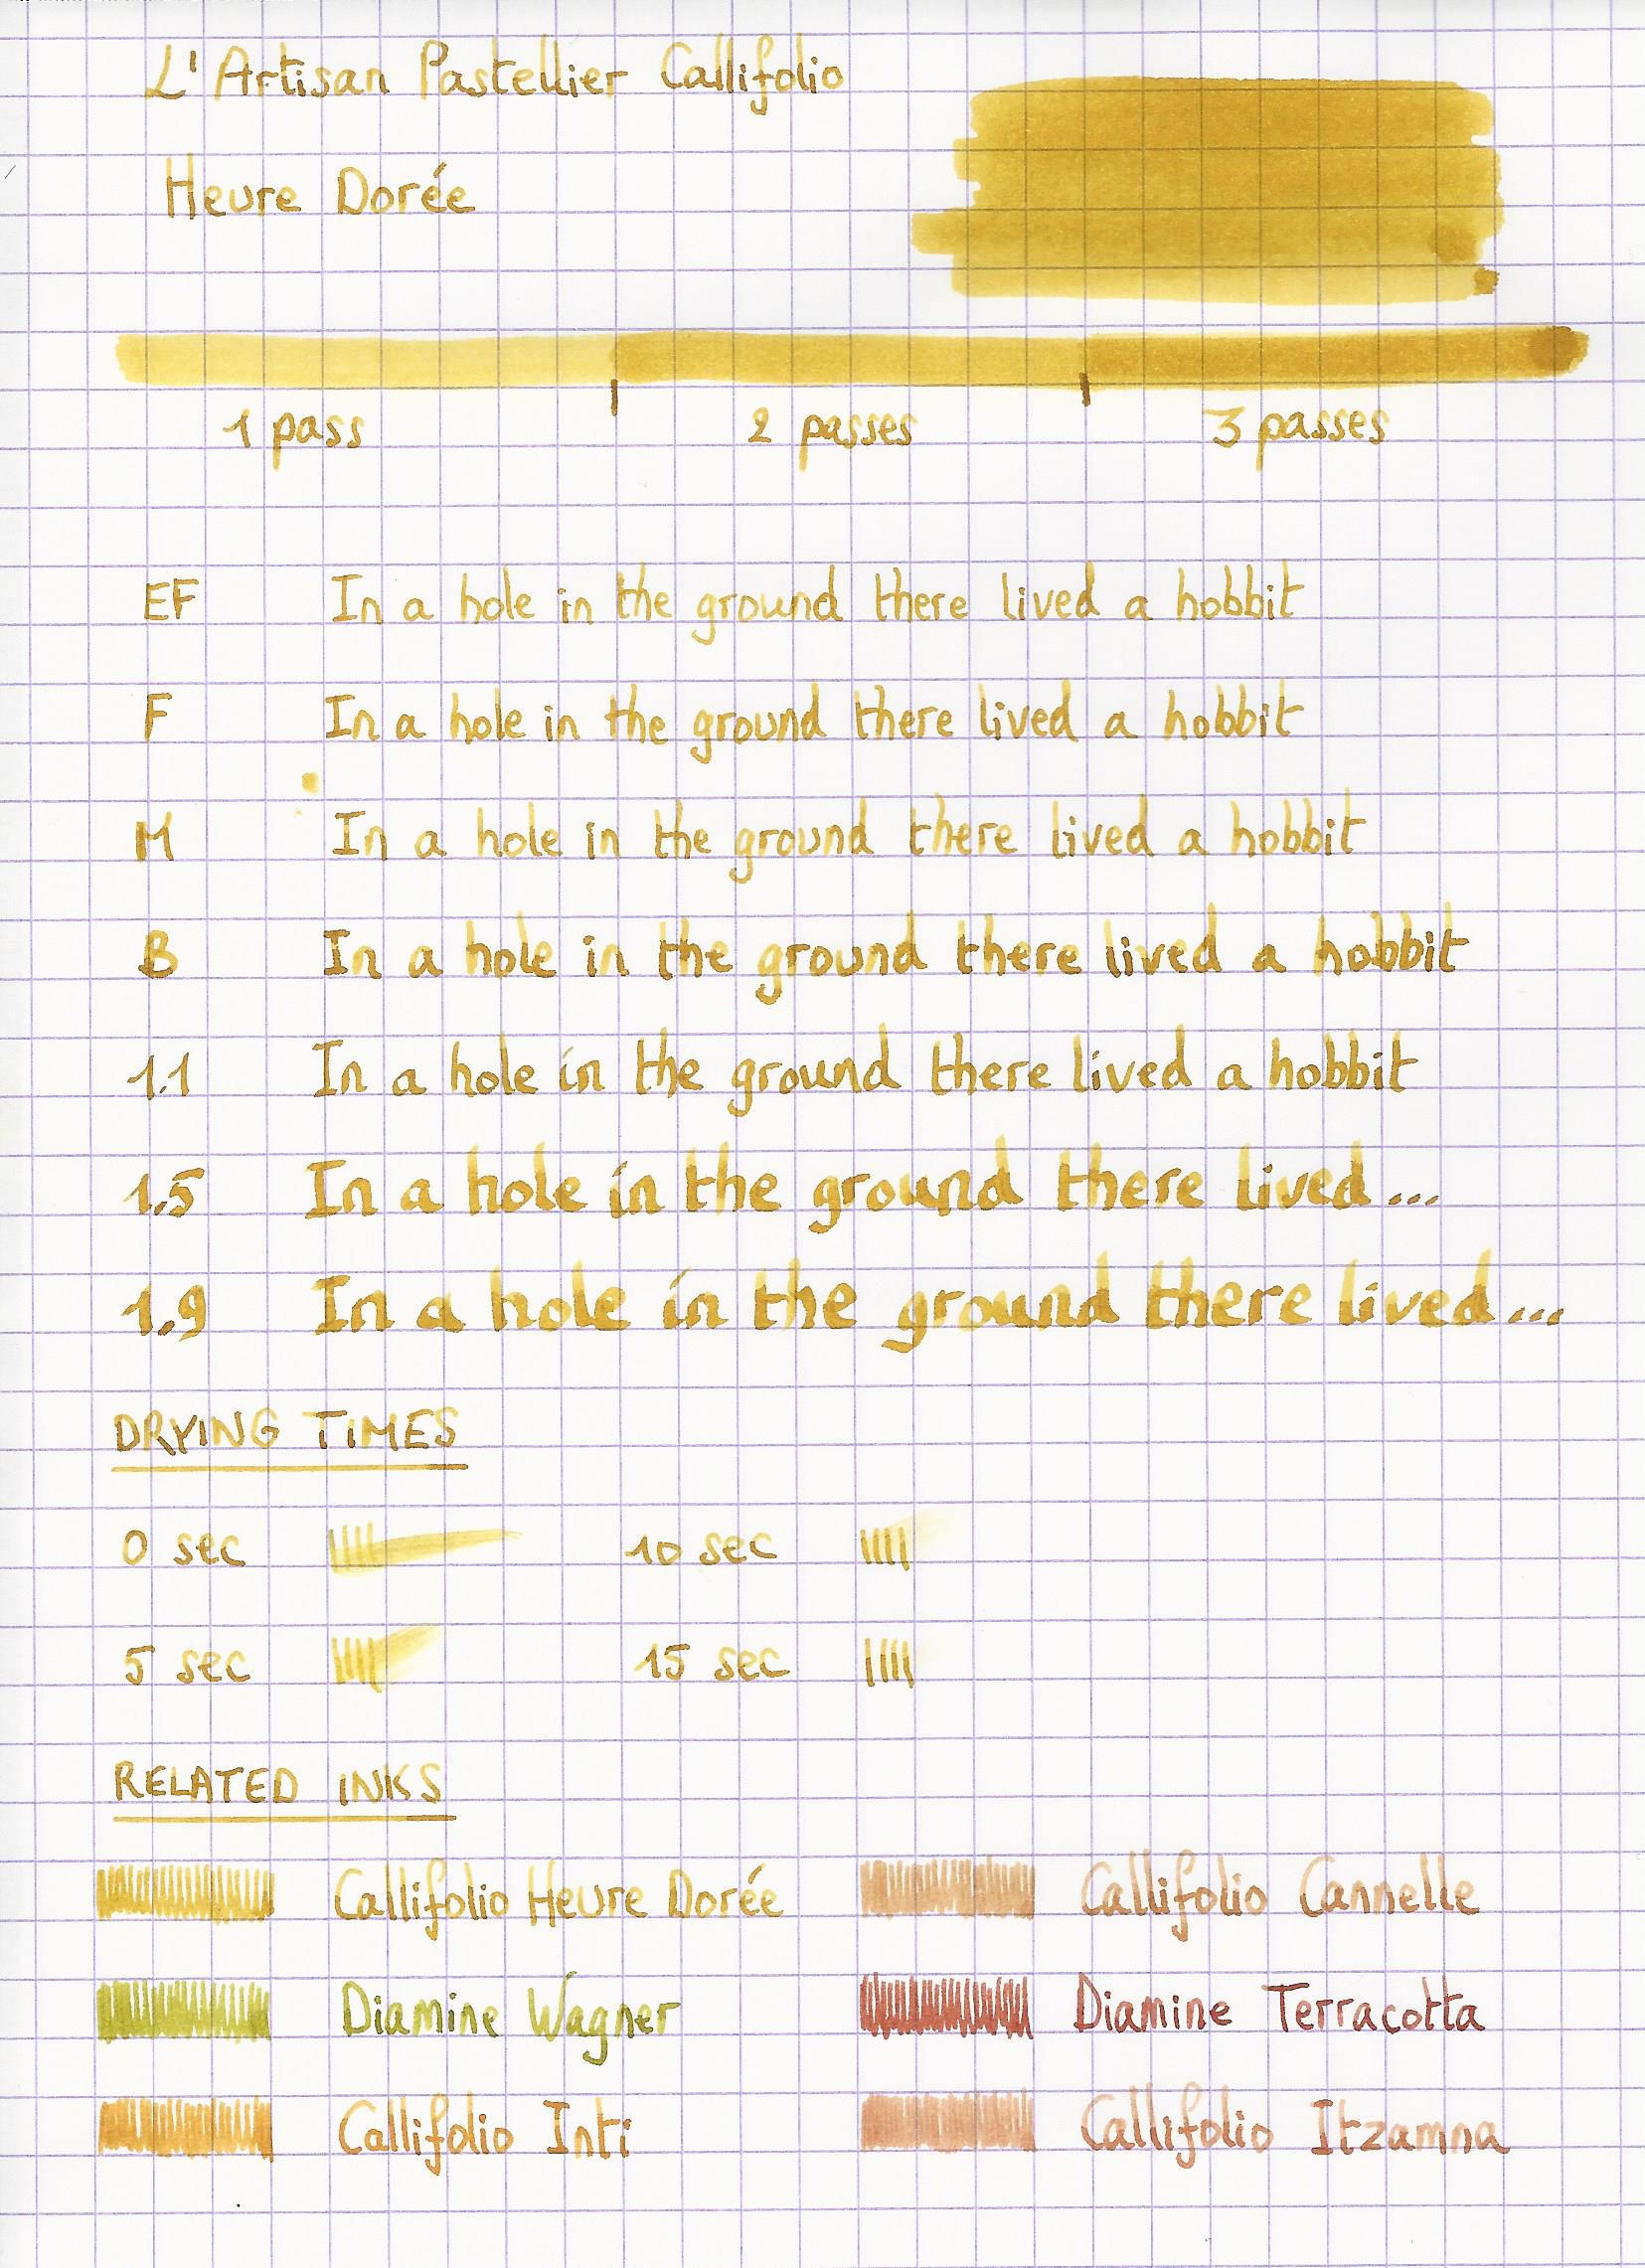 L'Artisan Pastellier Callifolio
Heure Dorée
1 pass 2 passes 3 passes
EF In a hole in the ground there lived a hobbit
F In a hole in the ground there lived a hobbit
M In a hole in the ground there lived a hobbit
B In a hole in the ground there lived a hobbit
1.1 In a hole in the ground there lived a hobbit
1.5 In a hole in the ground there lived...
1.9 In a hole in the ground there lived...
DRYING TIMES
0 sec 10 sec
5 sec 15 sec
RELATED INKS
Callifolio Heure Dorée Callifolio Cannelle
Diamine Wagner Diamine Terracotta
Callifolio Inti Callifolio Itzamna